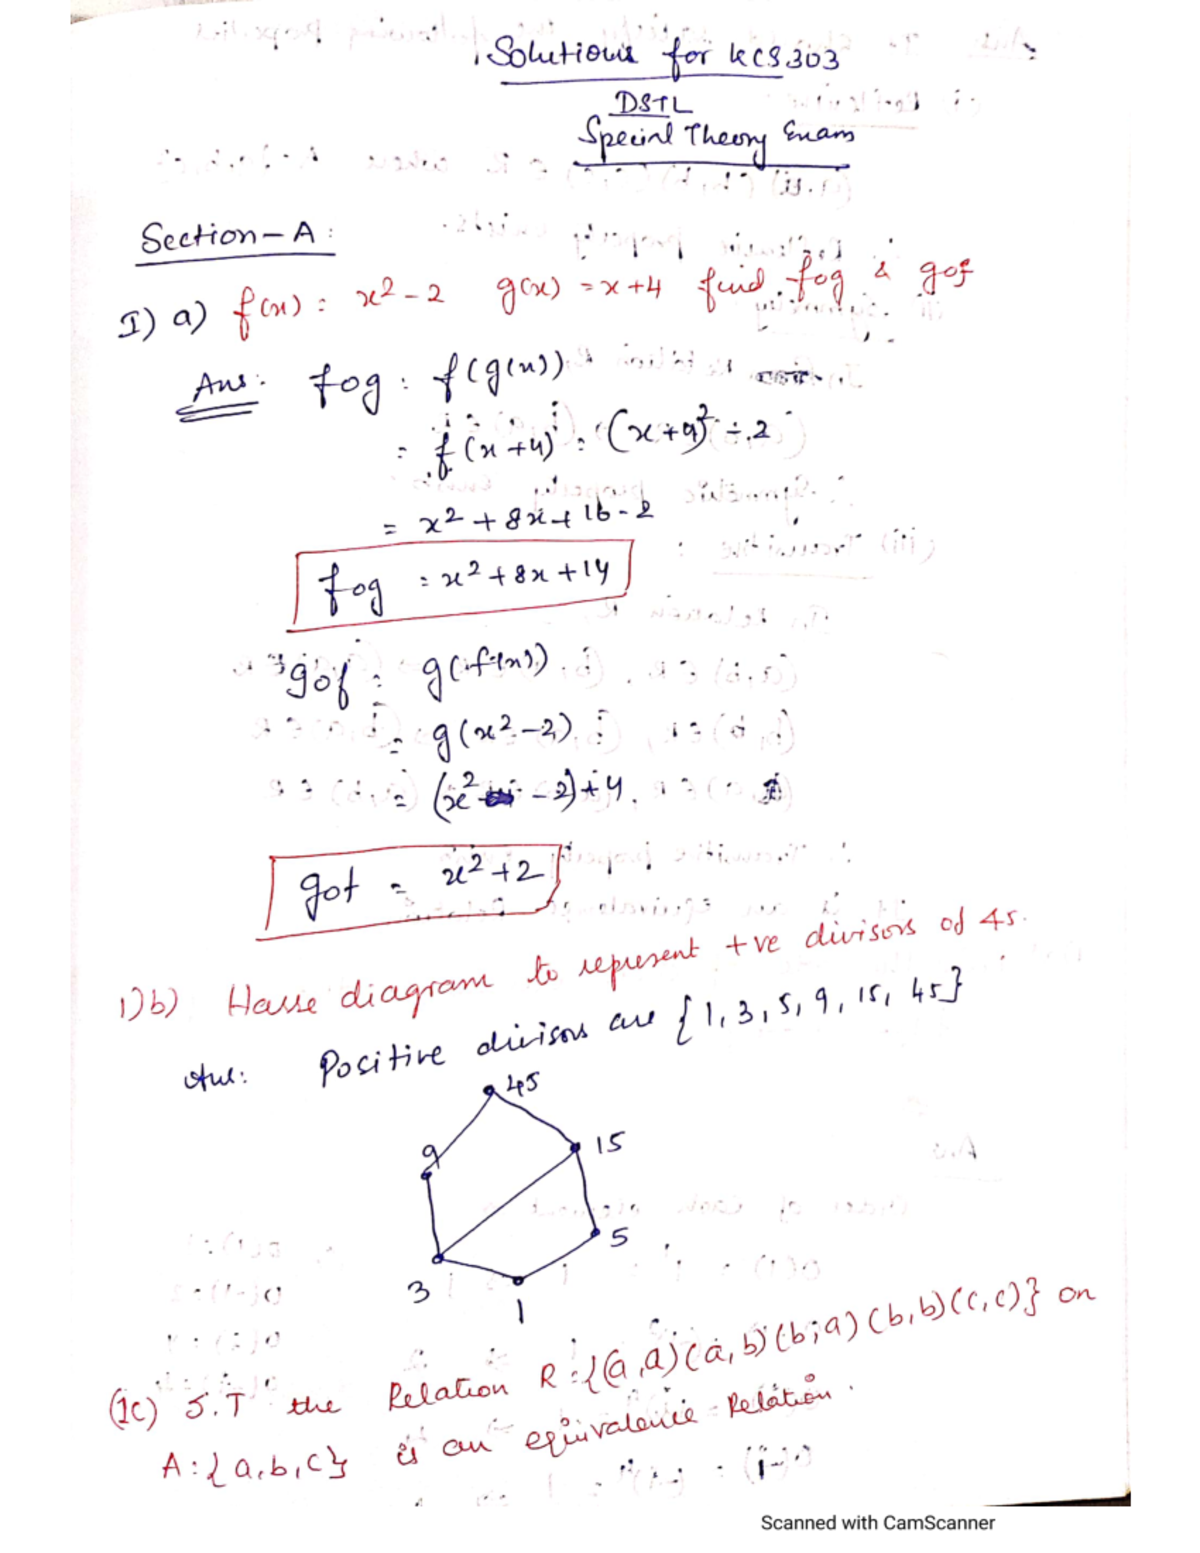 Solutions for KCS303
DSTL
Special Theory Exam
Section - A :
I) a) f(x) : x² - 2 g(x) = x + 4 find fog & gof
Ans: fog : f(g(x))
= f(x + 4) : (x + 4)² - 2
= x² + 8x + 16 - 2
fog = x² + 8x + 14
gof : g(f(x))
= g(x² - 2)
= (x² - 2) + 4
gof = x² + 2
1)b) Hasse diagram to represent +ve divisors of 45.
Ans: Positive divisors are {1, 3, 5, 9, 15, 45}
45
9
15
5
3
1
(1c) S.T the Relation R = {(a,a)(a,b)(b,a)(b,b)(c,c)} on
A : {a,b,c} is an equivalence Relation.
Scanned with CamScanner